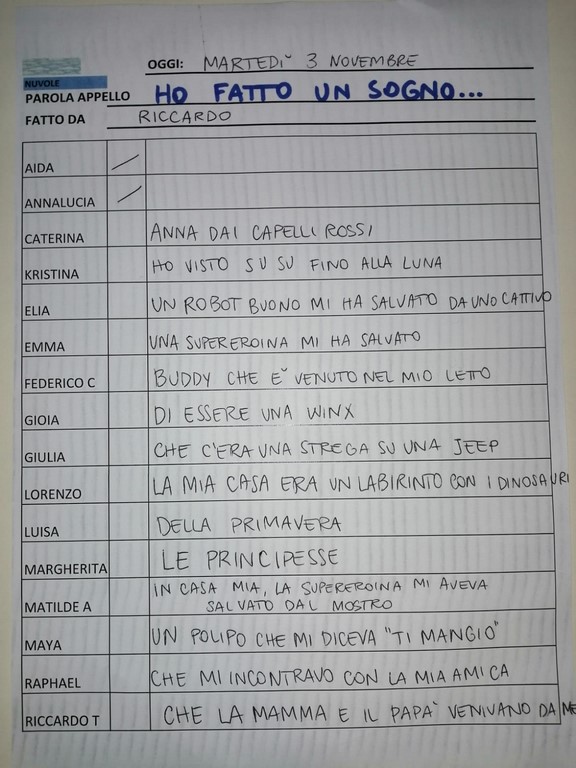 OGGI: MARTEDÌ 3 NOVEMBRE
NUVOLE
PAROLA APPELLO HO FATTO UN SOGNO...
FATTO DA RICCARDO
AIDA /
ANNALUCIA /
CATERINA ANNA DAI CAPELLI ROSSI
KRISTINA HO VISTO SU SU FINO ALLA LUNA
ELIA UN ROBOT BUONO MI HA SALVATO DA UNO CATTIVO
EMMA UNA SUPEREROINA MI HA SALVATO
FEDERICO C BUDDY CHE E' VENUTO NEL MIO LETTO
GIOIA DI ESSERE UNA WINX
GIULIA CHE C'ERA UNA STREGA SU UNA JEEP
LORENZO LA MIA CASA ERA UN LABIRINTO CON I DINOSAURI
LUISA DELLA PRIMAVERA
MARGHERITA LE PRINCIPESSE
MATILDE A IN CASA MIA, LA SUPEREROINA MI AVEVA
SALVATO DAL MOSTRO
MAYA UN POLIPO CHE MI DICEVA "TI MANGIO"
RAPHAEL CHE MI INCONTRAVO CON LA MIA AMICA
RICCARDO T CHE LA MAMMA E IL PAPA' VENIVANO DA ME